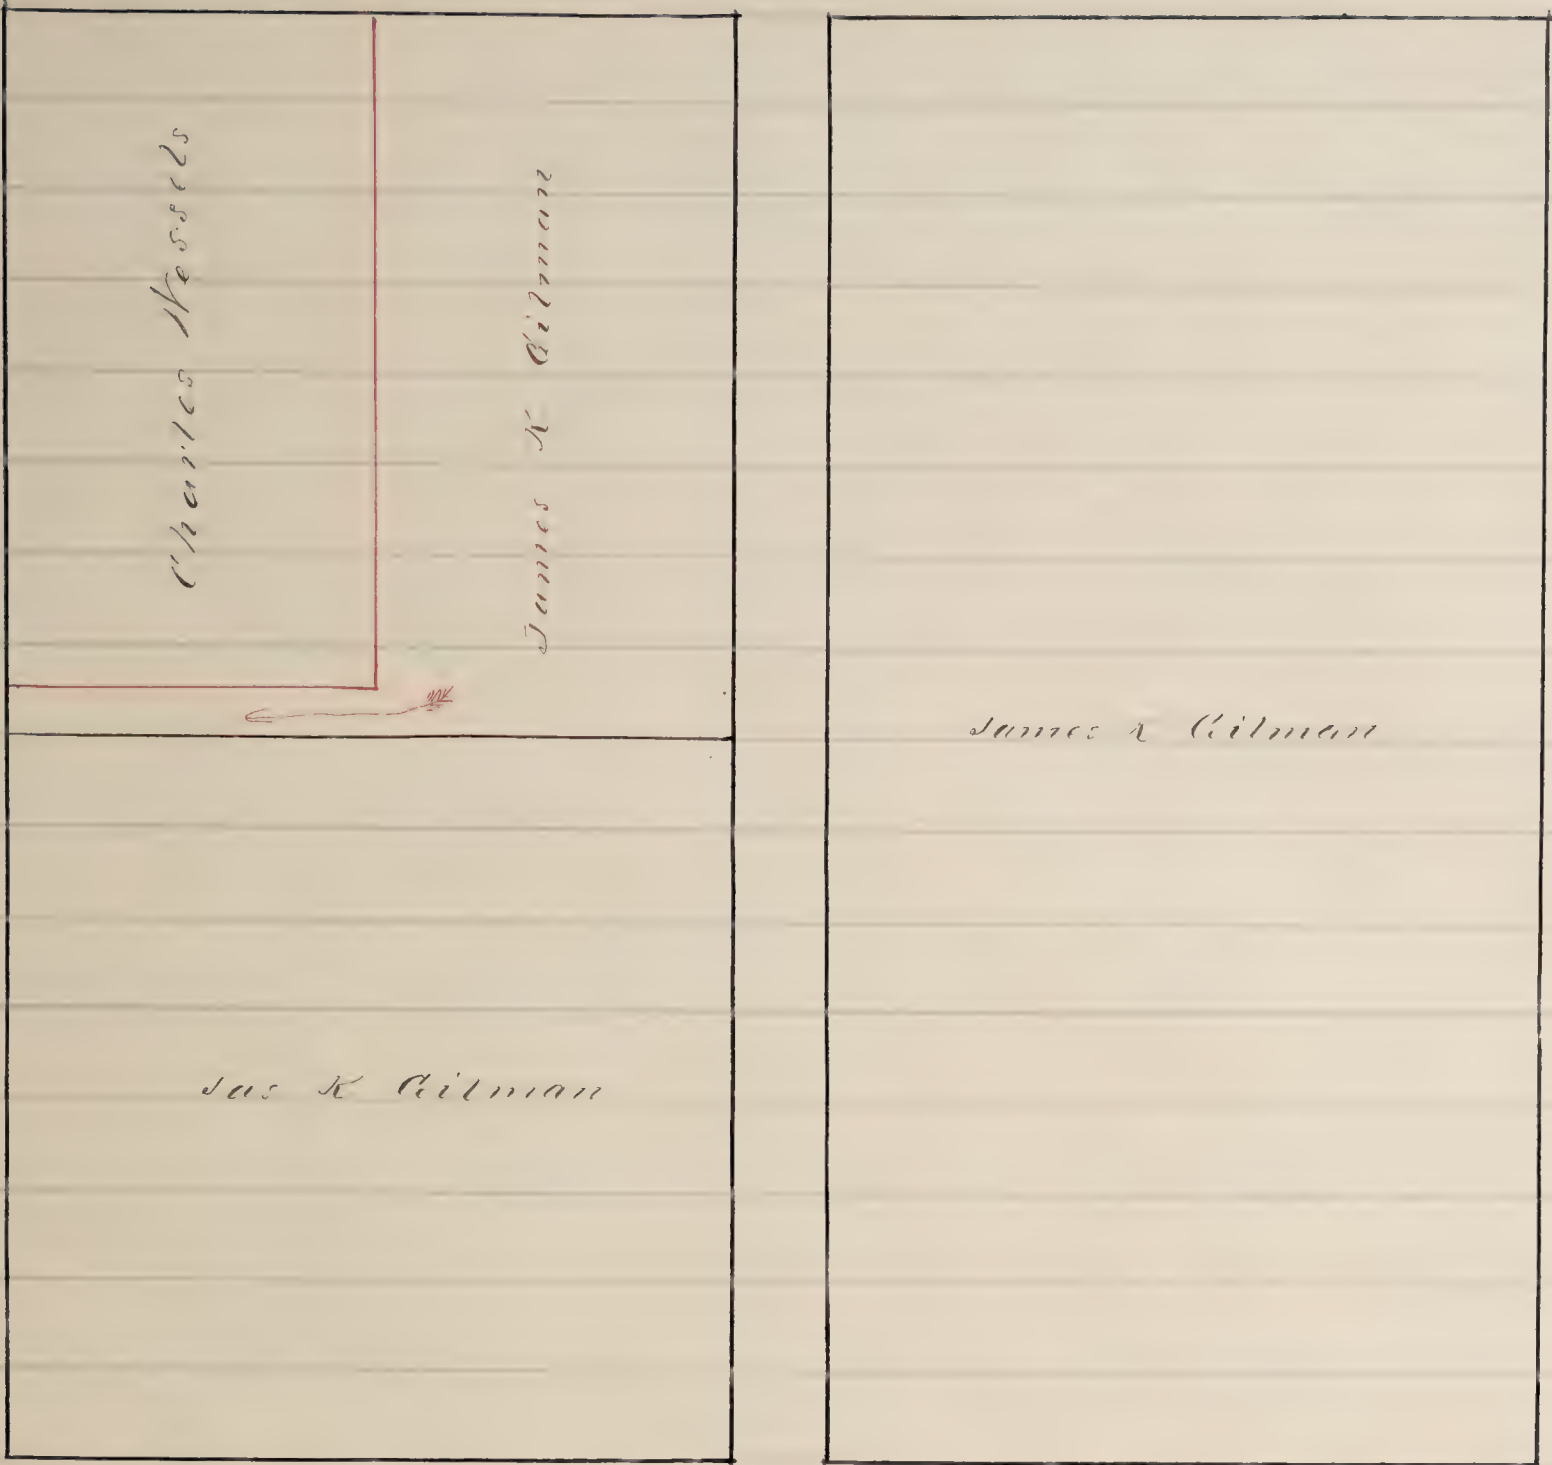 Charles Wessels
James K Gilman
James K Gilman
Jas K Gilman